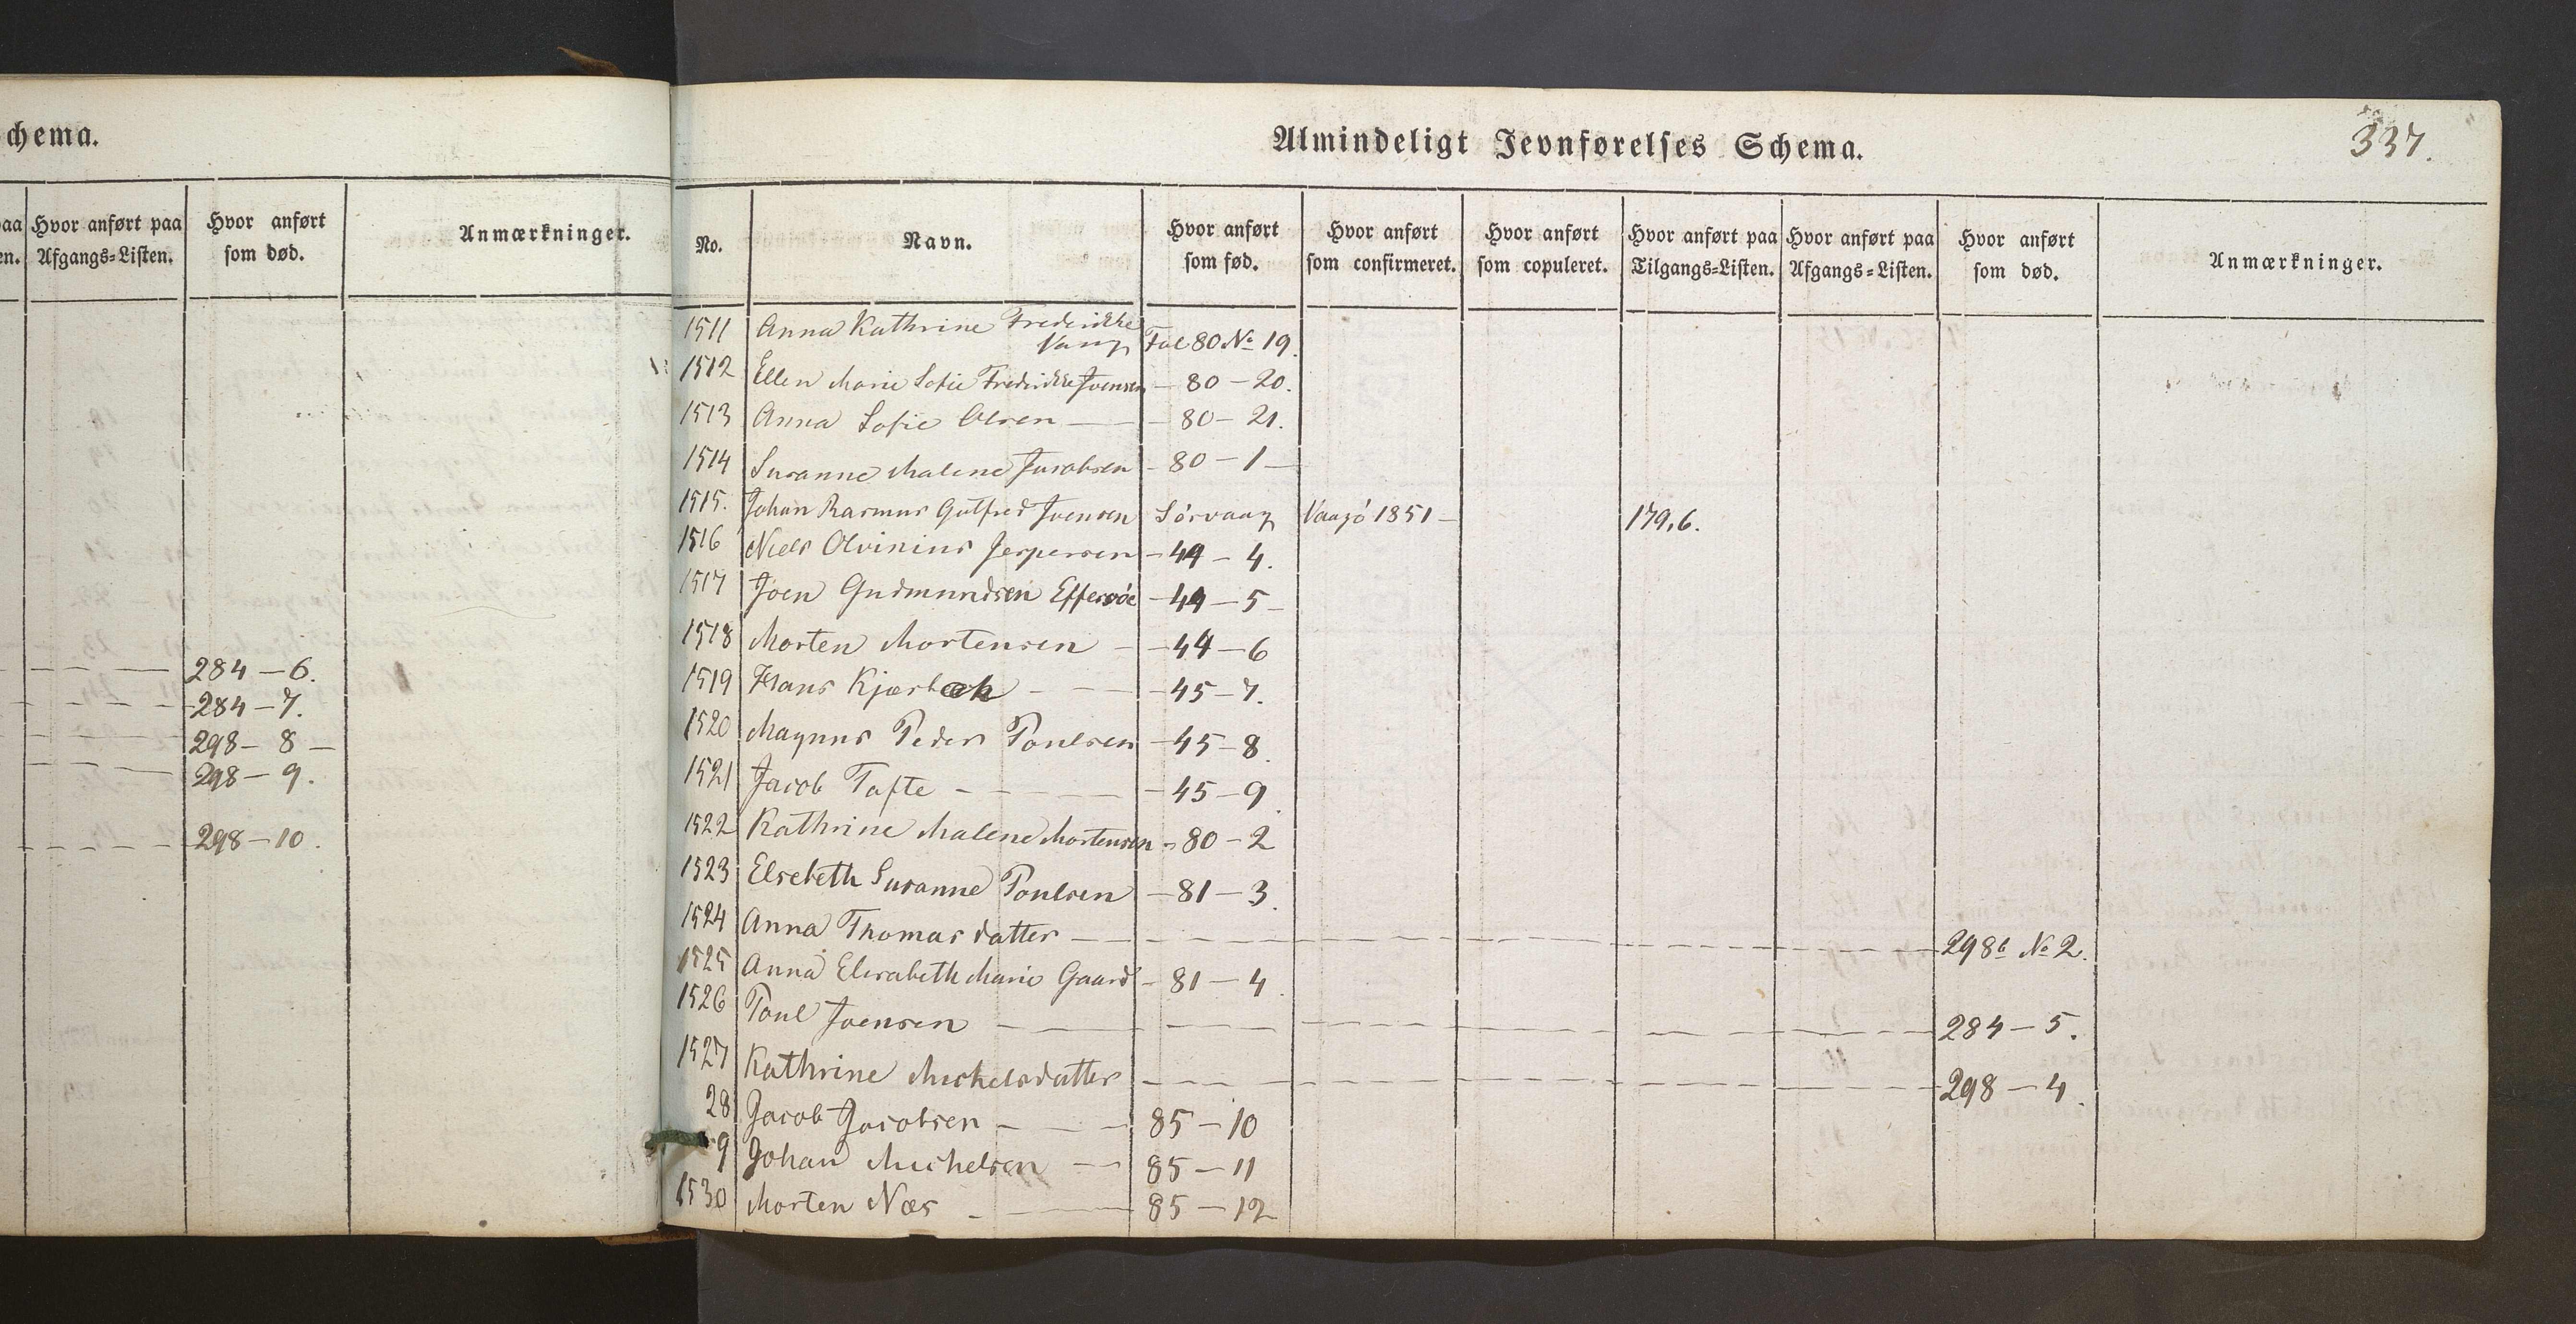 chema.
paa Hvor anført paa Hvor anført Anmærkninger.
en. Afgangs=Listen. som død.
284 – 6.
284 – 7.
298 – 8 –
298 – 9.
298 – 10.
Almindeligt Jevnførelses Schema. 337.
No. Navn. Hvor anført Hvor anført Hvor anført Hvor anført paa Hvor anført paa Hvor anført Anmærkninger.
som fød. som confirmeret. som copuleret. Tilgangs=Listen. Afgangs=Listen. som død.
1511 Anna Kathrine Frederikke
Vang Fol 80 No 19.
1512 Ellen Marie Sofie Frederikke Joensen – 80 – 20.
1513 Anna Sofie Olsen – 80 – 21.
1514 Susanne Malene Jacobsen – 80 – 1 –
1515. Johan Rasmus Gutfred Joensen Sörvaag Vaagö 1851 – 179, 6.
1516 Niels Olvinius Jespersen – 44 – 4.
1517 Joen Gudmundsen Effersöe – 44 – 5 –
1518 Morten Mortensen – 44 – 6
1519 Hans Kjærbæk – 45 – 7.
1520 Magnus Peder Poulsen – 45 – 8.
1521 Jacob Tafte – 45 – 9.
1522 Kathrine Malene Mortensen – 80 – 2
1523 Elsebeth Susanne Poulsen – 81 – 3.
1524 Anna Thomasdatter – 298b No 2.
1525 Anna Elisabeth Marie Gaard – 81 – 4.
1526 Poul Joensen – 284 – 5.
1527 Kathrine Michelsdatter – 298 – 4.
28 Jacob Jacobsen – 85 – 10
9 Johan Michelsen – 85 – 11
1530 Morten Næs – 85 – 12